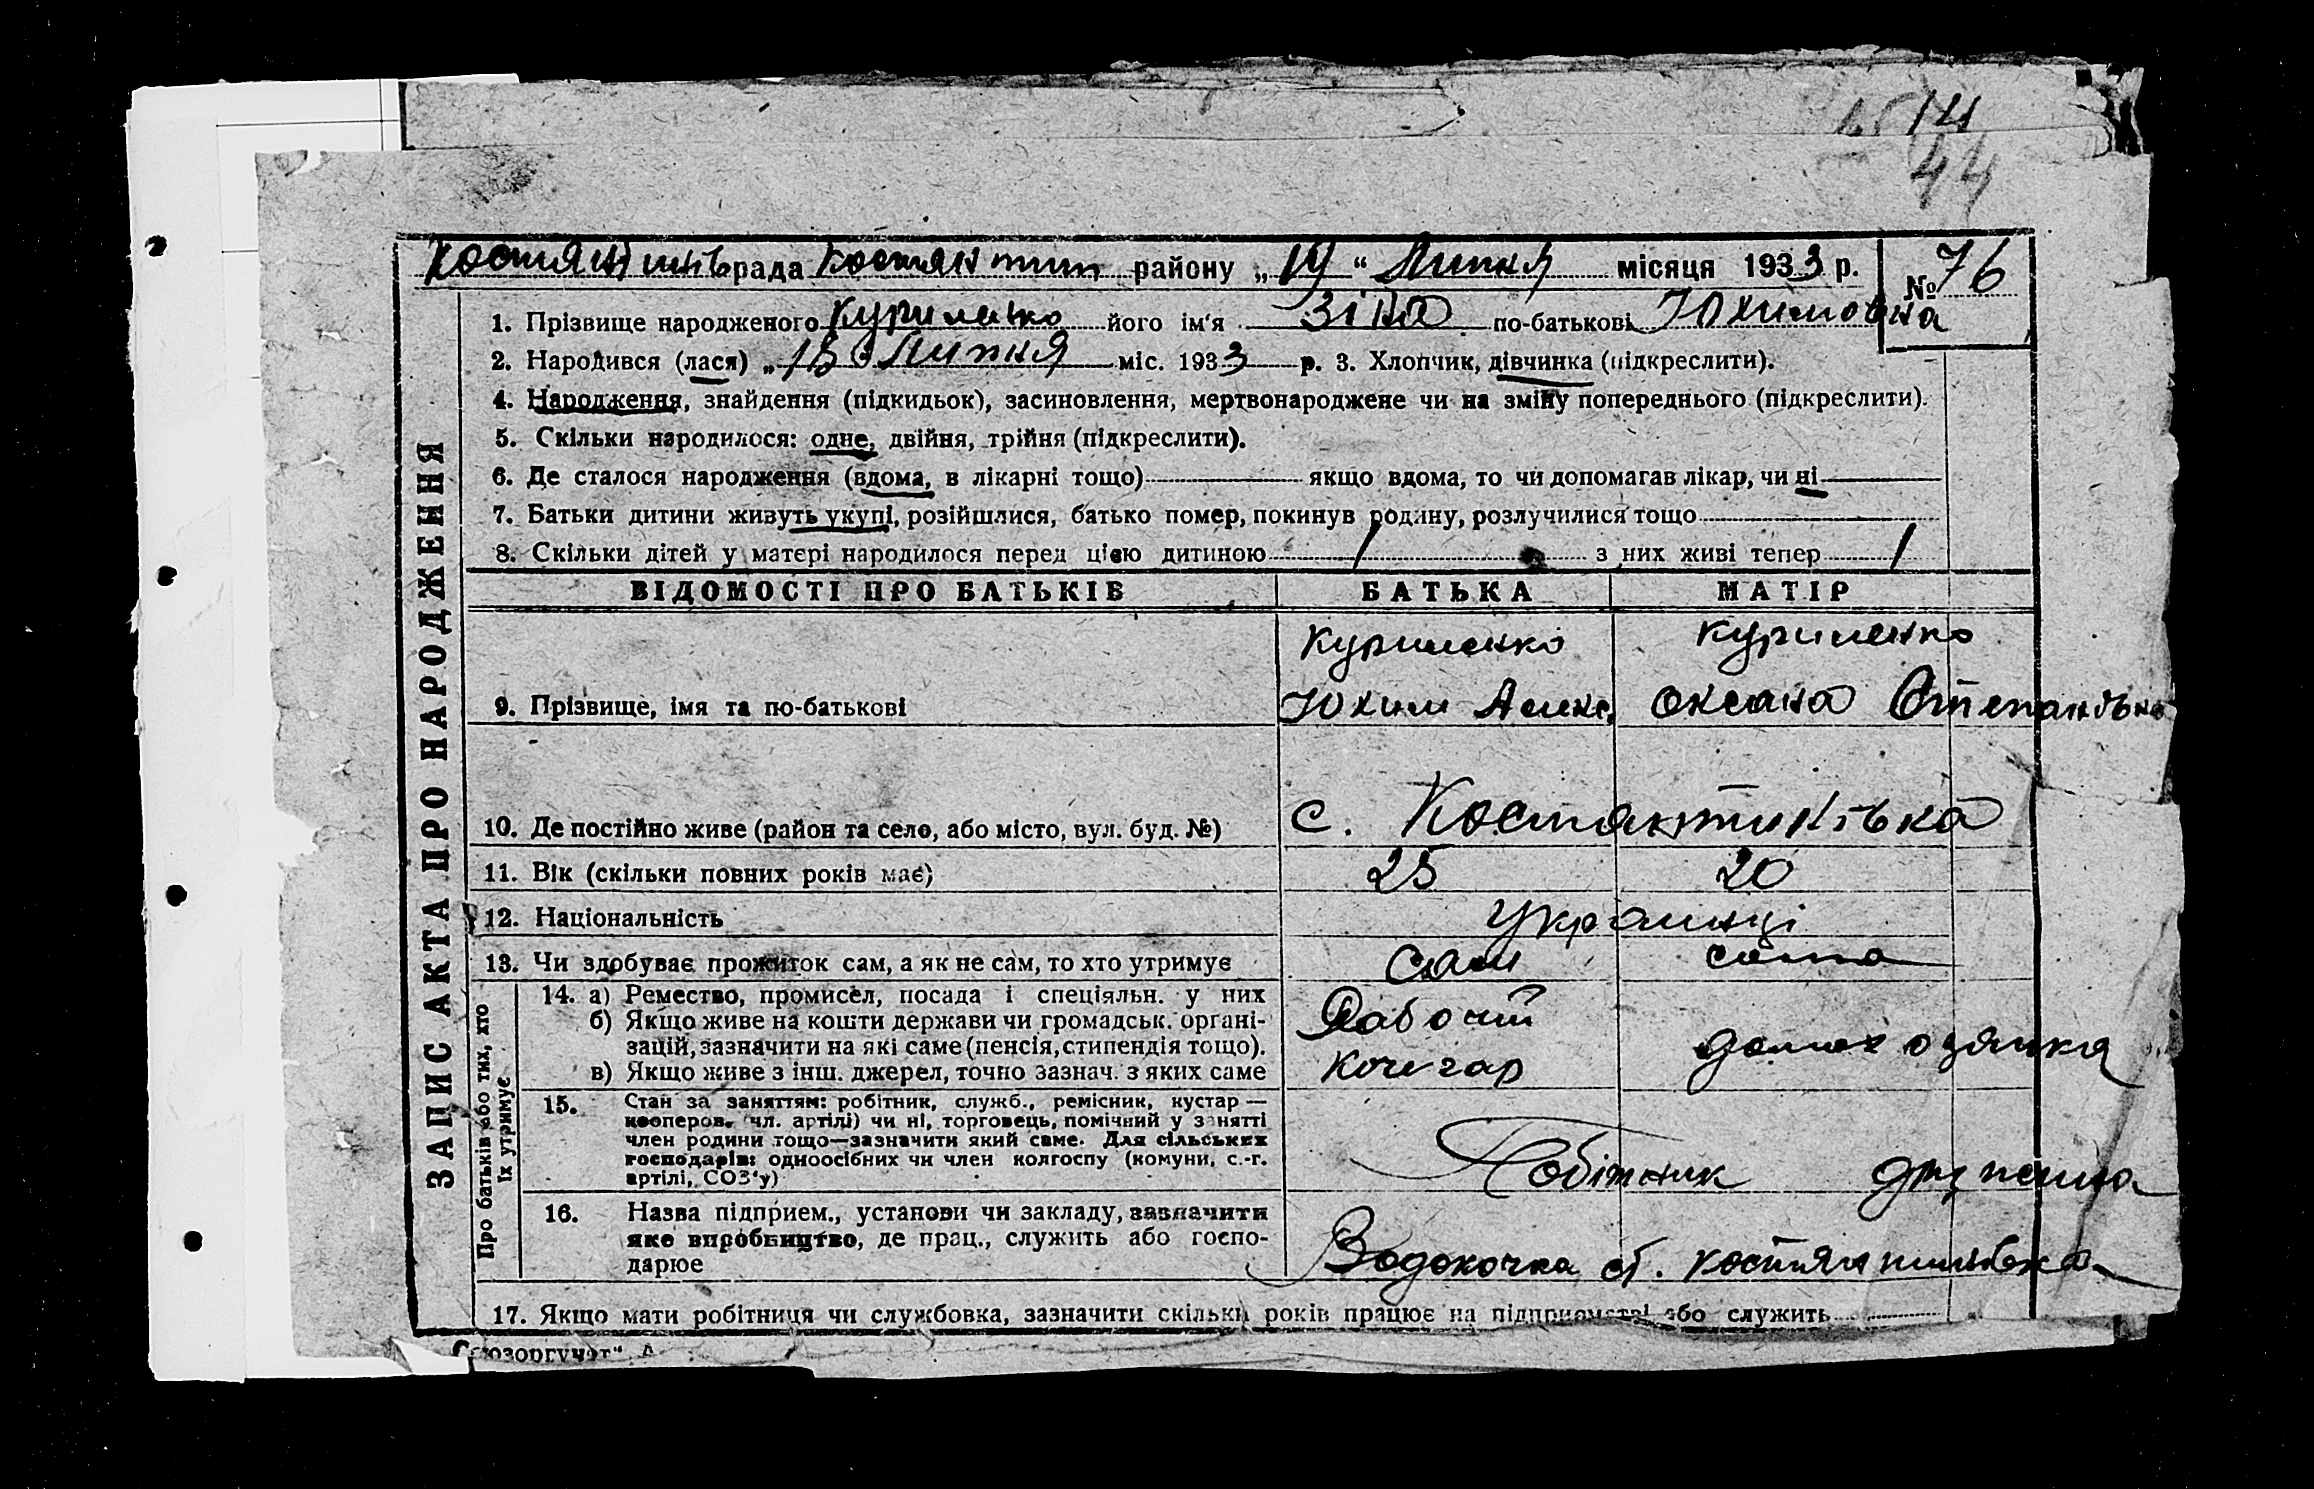 14
44
Костянтинів рада Костянтин району „19“ Липня місяця 1933 р. № 76
1. Прізвище народженого Куриленко його ім'я Зіна по-батькові Юхимовна
2. Народився (лася) „18 Липня міс. 1933 р. 3. Хлопчик, дівчинка (підкреслити).
4. Народження, знайдення (підкидьок), засиновлення, мертвонароджене чи на зміну попереднього (підкреслити).
5. Скільки народилося: одне, двійня, трійня (підкреслити).
6. Де сталося народження (вдома, в лікарні тощо) якщо вдома, то чи допомагав лікар, чи ні
7. Батьки дитини живуть укупі, розійшлися, батько помер, покинув родину, розлучилися тощо
8. Скільки дітей у матері народилося перед цією дитиною 1 з них живі тепер 1
ВІДОМОСТІ ПРО БАТЬКІВ БАТЬКА МАТІР
Куриленко Куриленко
9. Прізвище, імя та по-батькові Юхим Алекс. Оксана Степановна
10. Де постійно живе (район та село, або місто, вул. буд. №) с. Костянтинівка
11. Вік (скільки повних років має) 25 20
12. Національність Українці
13. Чи здобуває прожиток сам, а як не сам, то хто утримує сам сама
14. а) Ремество, промисел, посада і спеціяльн. у них Рабочий
б) Якщо живе на кошти держави чи громадськ. органі-
зацій, зазначити на які саме (пенсія, стипендія тощо). домохозяйка
в) Якщо живе з інш. джерел, точно зазнач. з яких саме кочегар
15. Стан за заняттям: робітник, служб., ремісник, кустар —
кооперов. чл. артілі) чи ні, торговець, помічний у занятті
член родини тощо—зазначити який саме. Для сільських
господарів: одноосібних чи член колгоспу (комуни, с.-г.
артілі, СОЗ'у) Робітник
16. Назва підприєм., установи чи закладу, зазначити
яке виробництво, де прац., служить або госпо-
дарює Водокочка ст. Костянтиновка
17. Якщо мати робітниця чи службовка, зазначити скільки років працює на підприємстві або служить
ЗАПИС АКТА ПРО НАРОДЖЕННЯ
Про батьків або тих, хто
їх утримує
Союзоргучет"